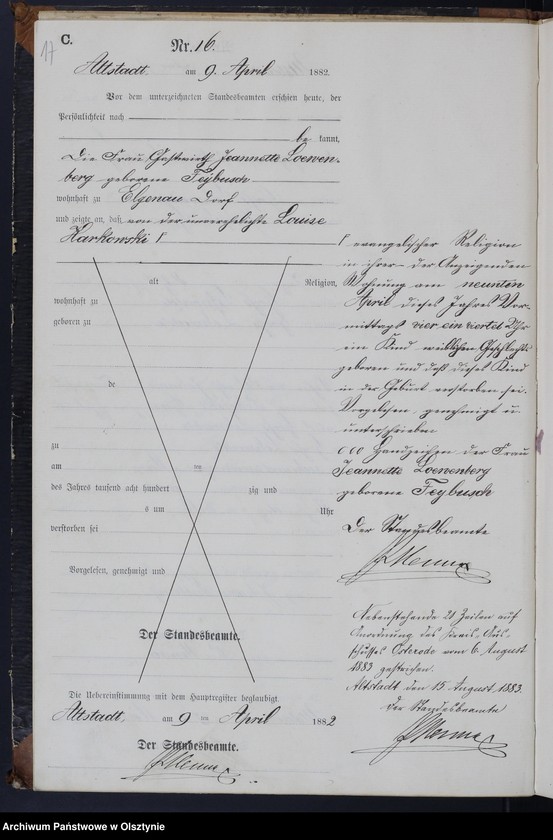 17
C.
Nr. 16.
Altstadt am 9. April 1882.
Vor dem unterzeichneten Standesbeamten erschien heute, der
Persönlichkeit nach
be kannt,
die Frau Gastwirth Jeannette Loewen-
berg geborene Feybusch
wohnhaft zu Elgenau Dorf
und zeigte an, daß von der unverehelichte Louise
Harkowski Γ
alt Religion,
wohnhaft zu
geboren zu
de
zu
am
des Jahres tausend acht hundert zig und
s um Uhr
verstorben sei
Vorgelesen, genehmigt und
Der Standesbeamte.
Die Uebereinstimmung mit dem Hauptregister beglaubigt
Altstadt, am 9 ten April 1882
Der Standesbeamte.
Γ evangelischer Religion
in ihrer der Anzeigenden
Wohnung am neunten
April dieses Jahres Vor-
mittags vier ein viertel Uhr
ein Kind weiblichen Geschlechts
geboren und daß dieses Kind
in der Geburt verstorben sei.
Vorgelesen, genehmigt u.
unterschrieben
000 Handzeichen der Frau
Jeannette Loewenberg
geborene Feybusch
Der Standesbeamte
Nebenstehende 20 Zeilen auf
Anordnung des Kreis-Aus-
schusses Osterode vom 6. August
1883 gestrichen.
Altstadt den 15. August 1883.
Der Standesbeamte
Archiwum Państwowe w Olsztynie